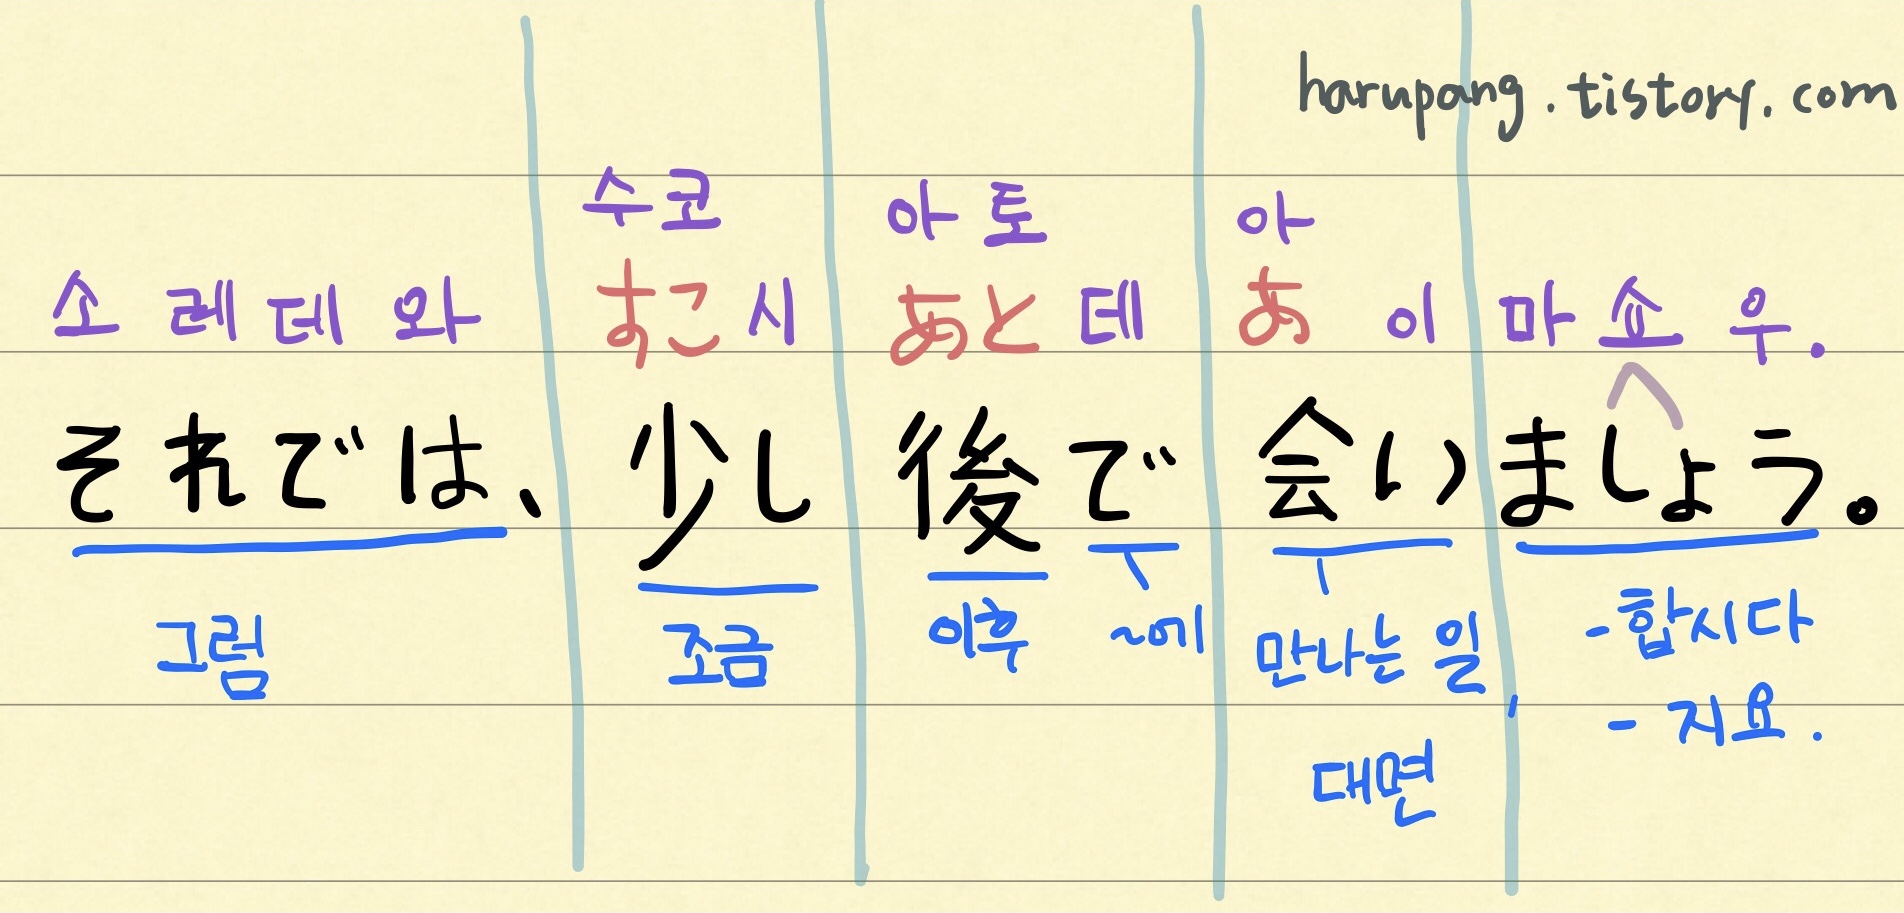 harupang.tistory.com
수코 아토 아
소레데와 すこ시 あと데 あ이 마쇼우.
それでは、少し後で会いましょう。
그럼 조금 이후 ~에 만나는 일, -합시다
대면 - 지요.